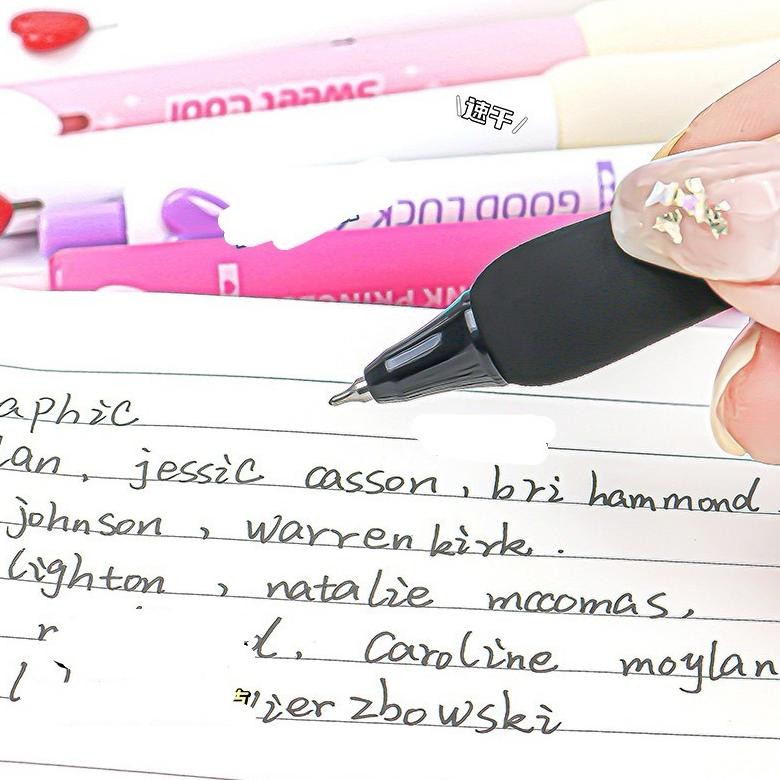 sweet cool
速干
GOOD LUCK
NK PRINCE
aphic
lan, jessic casson, bri hammond
johnson, warren kirk.
lighton, natalie mccomas,
r l, Caroline moylan
l ierzbowski